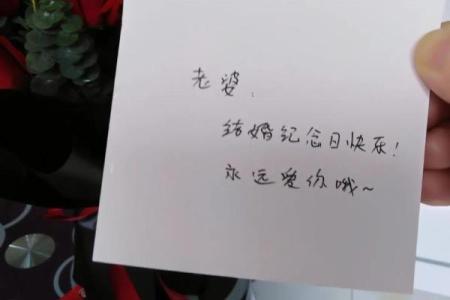 老婆：
结婚纪念日快乐！
永远爱你哦~